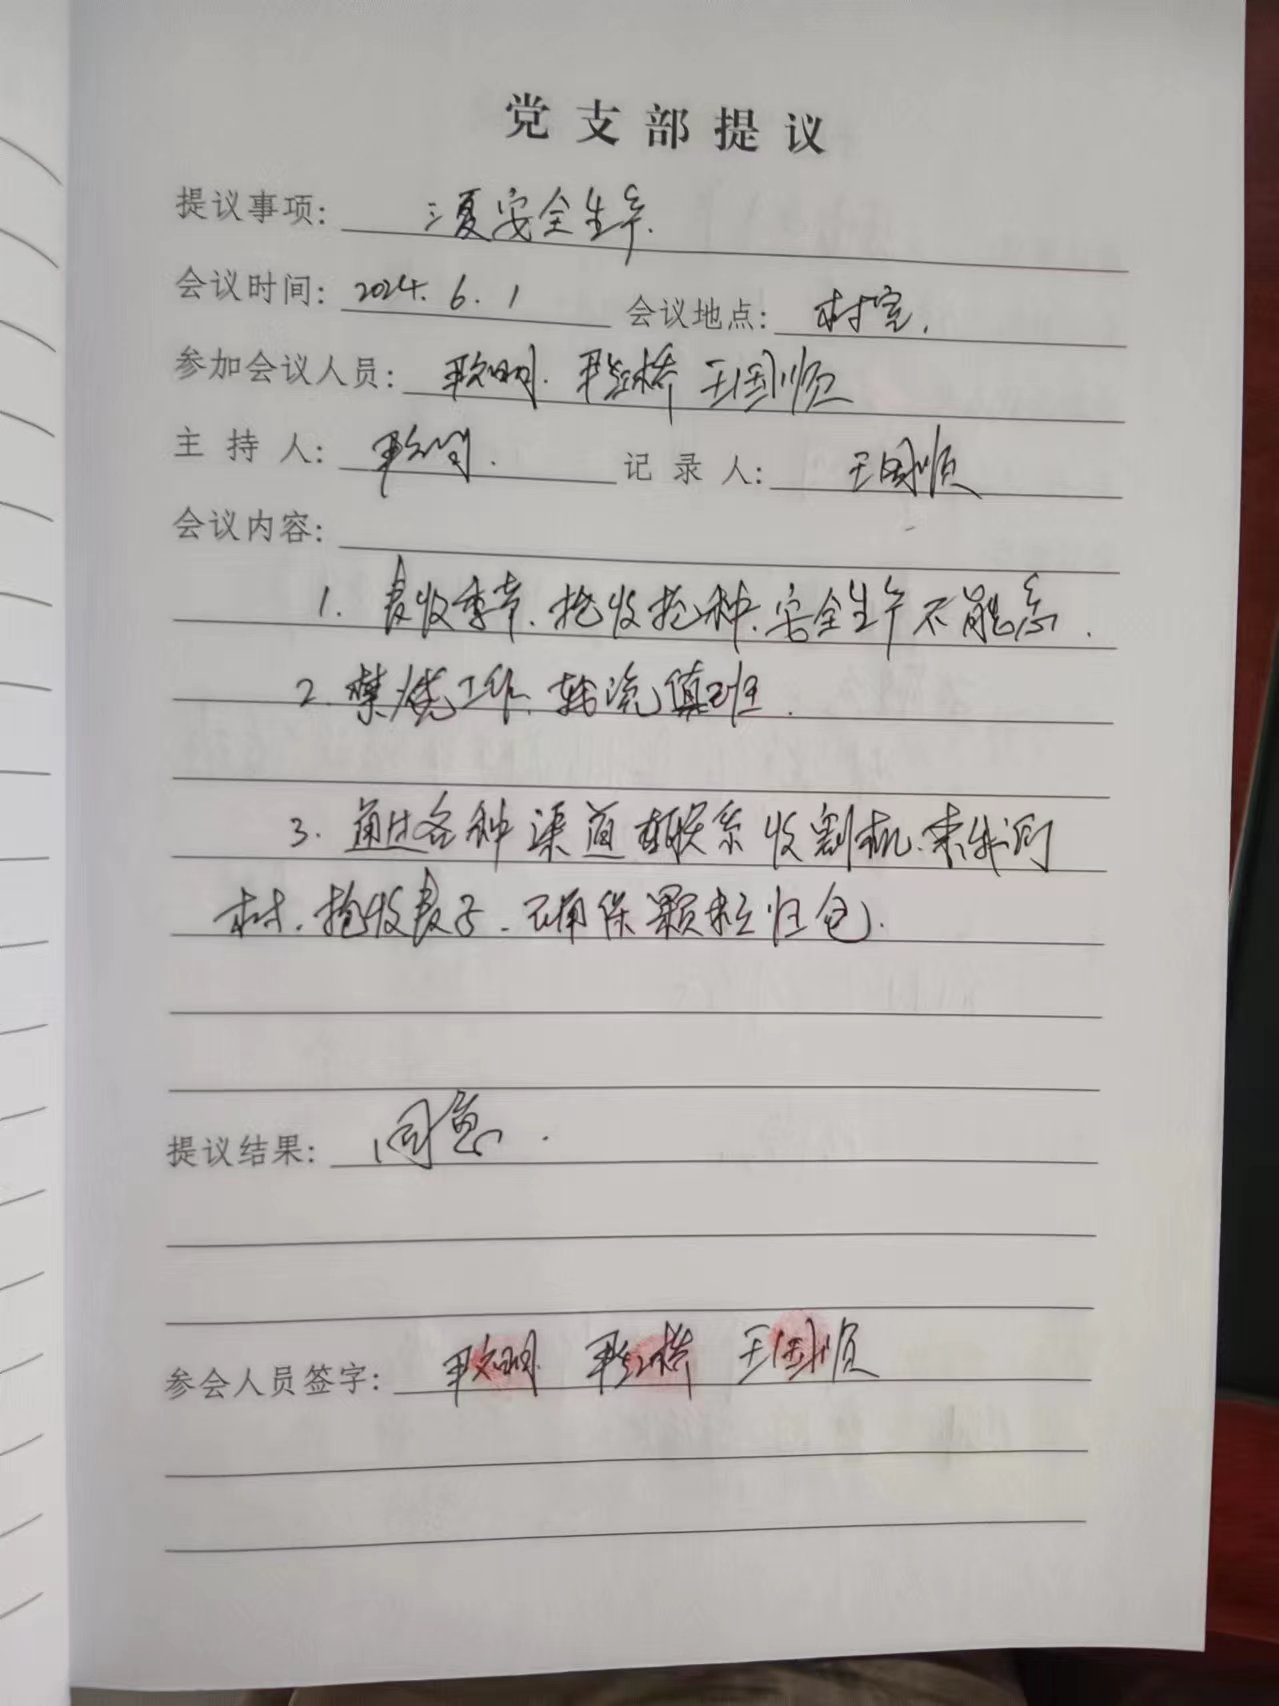 党支部提议
提议事项: 三夏安全生产.
会议时间: 2024. 6. 1 会议地点: 村室.
参加会议人员: 明. 桥 王国顺
主持人: 明. 记录人: 王国顺
会议内容:
1. 麦收季节. 抢收抢种. 安全生产不能忘.
2. 禁烧工作、轮流值班.
3. 通过各种渠道联系收割机. 来我们
村. 抢收麦子. 确保颗粒归仓.
提议结果: 同意.
参会人员签字: 明. 桥 王国顺